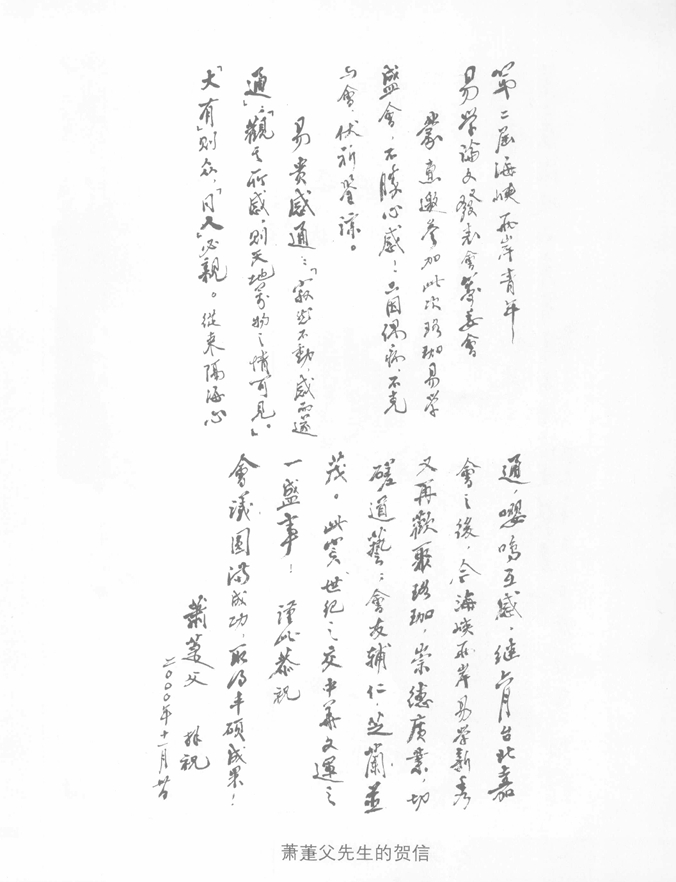 第二屆海峽兩岸青年
易學論文發表會籌委會
蒙惠邀參加此次珞珈易學
盛會，不勝心感！茲因偶病，不克
与會，伏祈鉴諒。
易贵感通：「寂然不動，感而遂
通」；「觀其所感，則天地萬物之情可見」。
「大有」則众，「同人」必親。從来隔海心
通，嚶鳴互感，继六月台北嘉
會之後，合海峽兩岸易學新秀
又再歡聚珞珈，崇德廣業，切
磋道藝；會友輔仁，芝蘭並
茂。此實世纪之交中華文運之
一盛事！ 謹此恭祝
會議圆满成功，取得丰硕成果！
蕭萐父 拜祝
二〇〇〇年十一月廿日
萧萐父先生的贺信